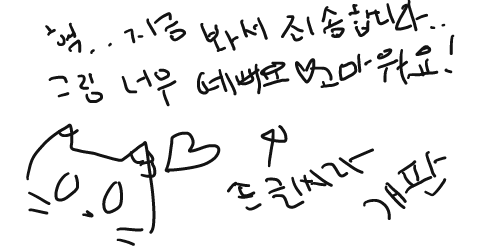 헉.. 지금 봐서 죄송합니다..
그림 너무 예뻐요♡고마워요!
손글씨라
개판